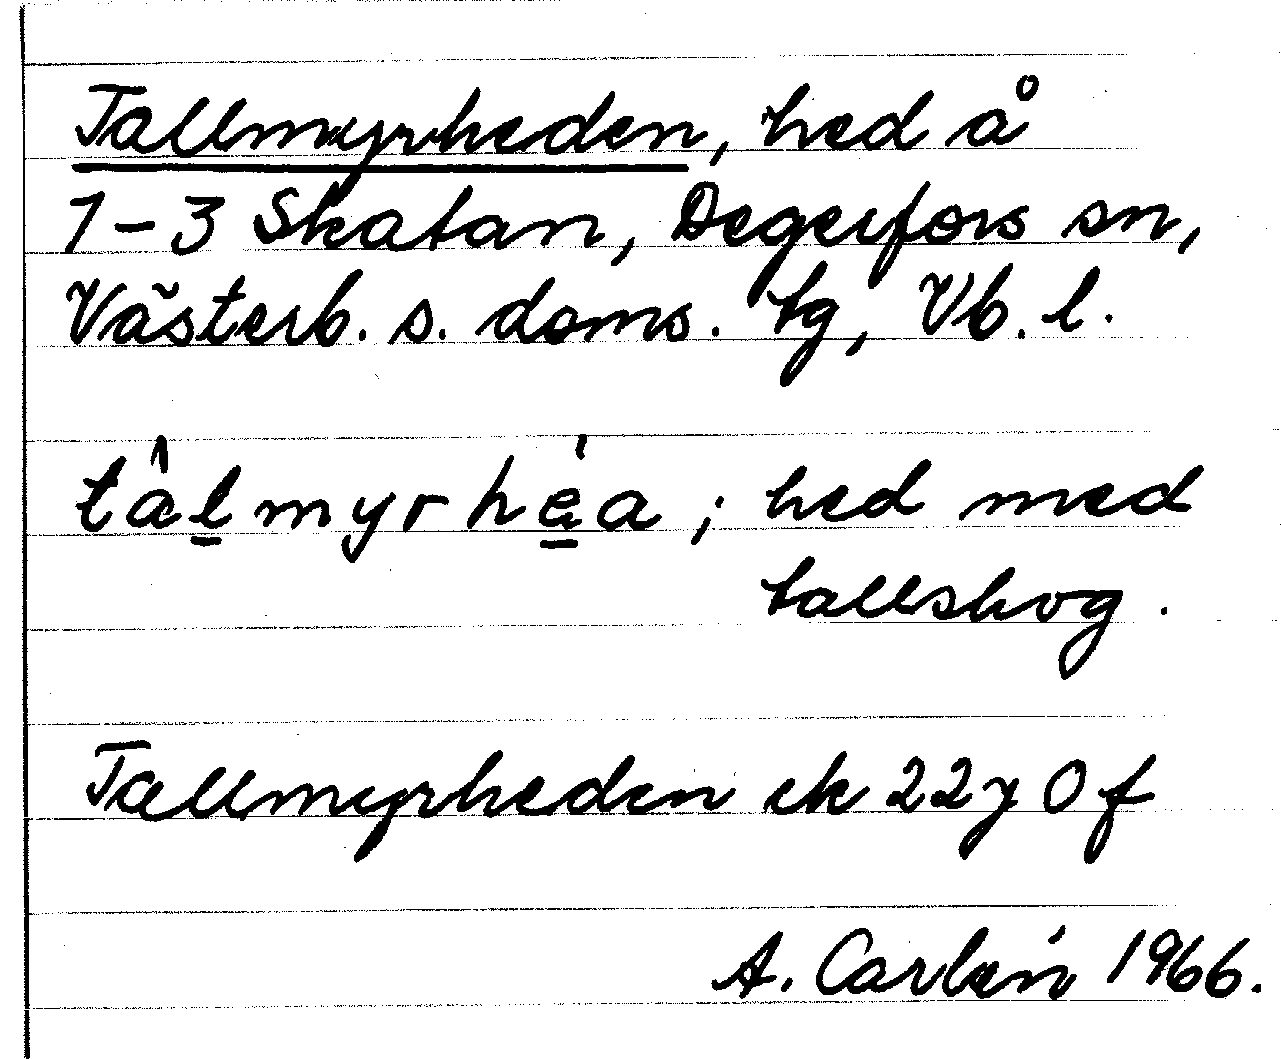 Tallmyrheden, hed å
1-3 Skatan, Degerfors sn,
Västerb. s. doms. tg, Vb. l.
tâlmyrhéa; hed med
tallskog.
Tallmyrheden ek 22y 0 f
A. Carlén 1966.